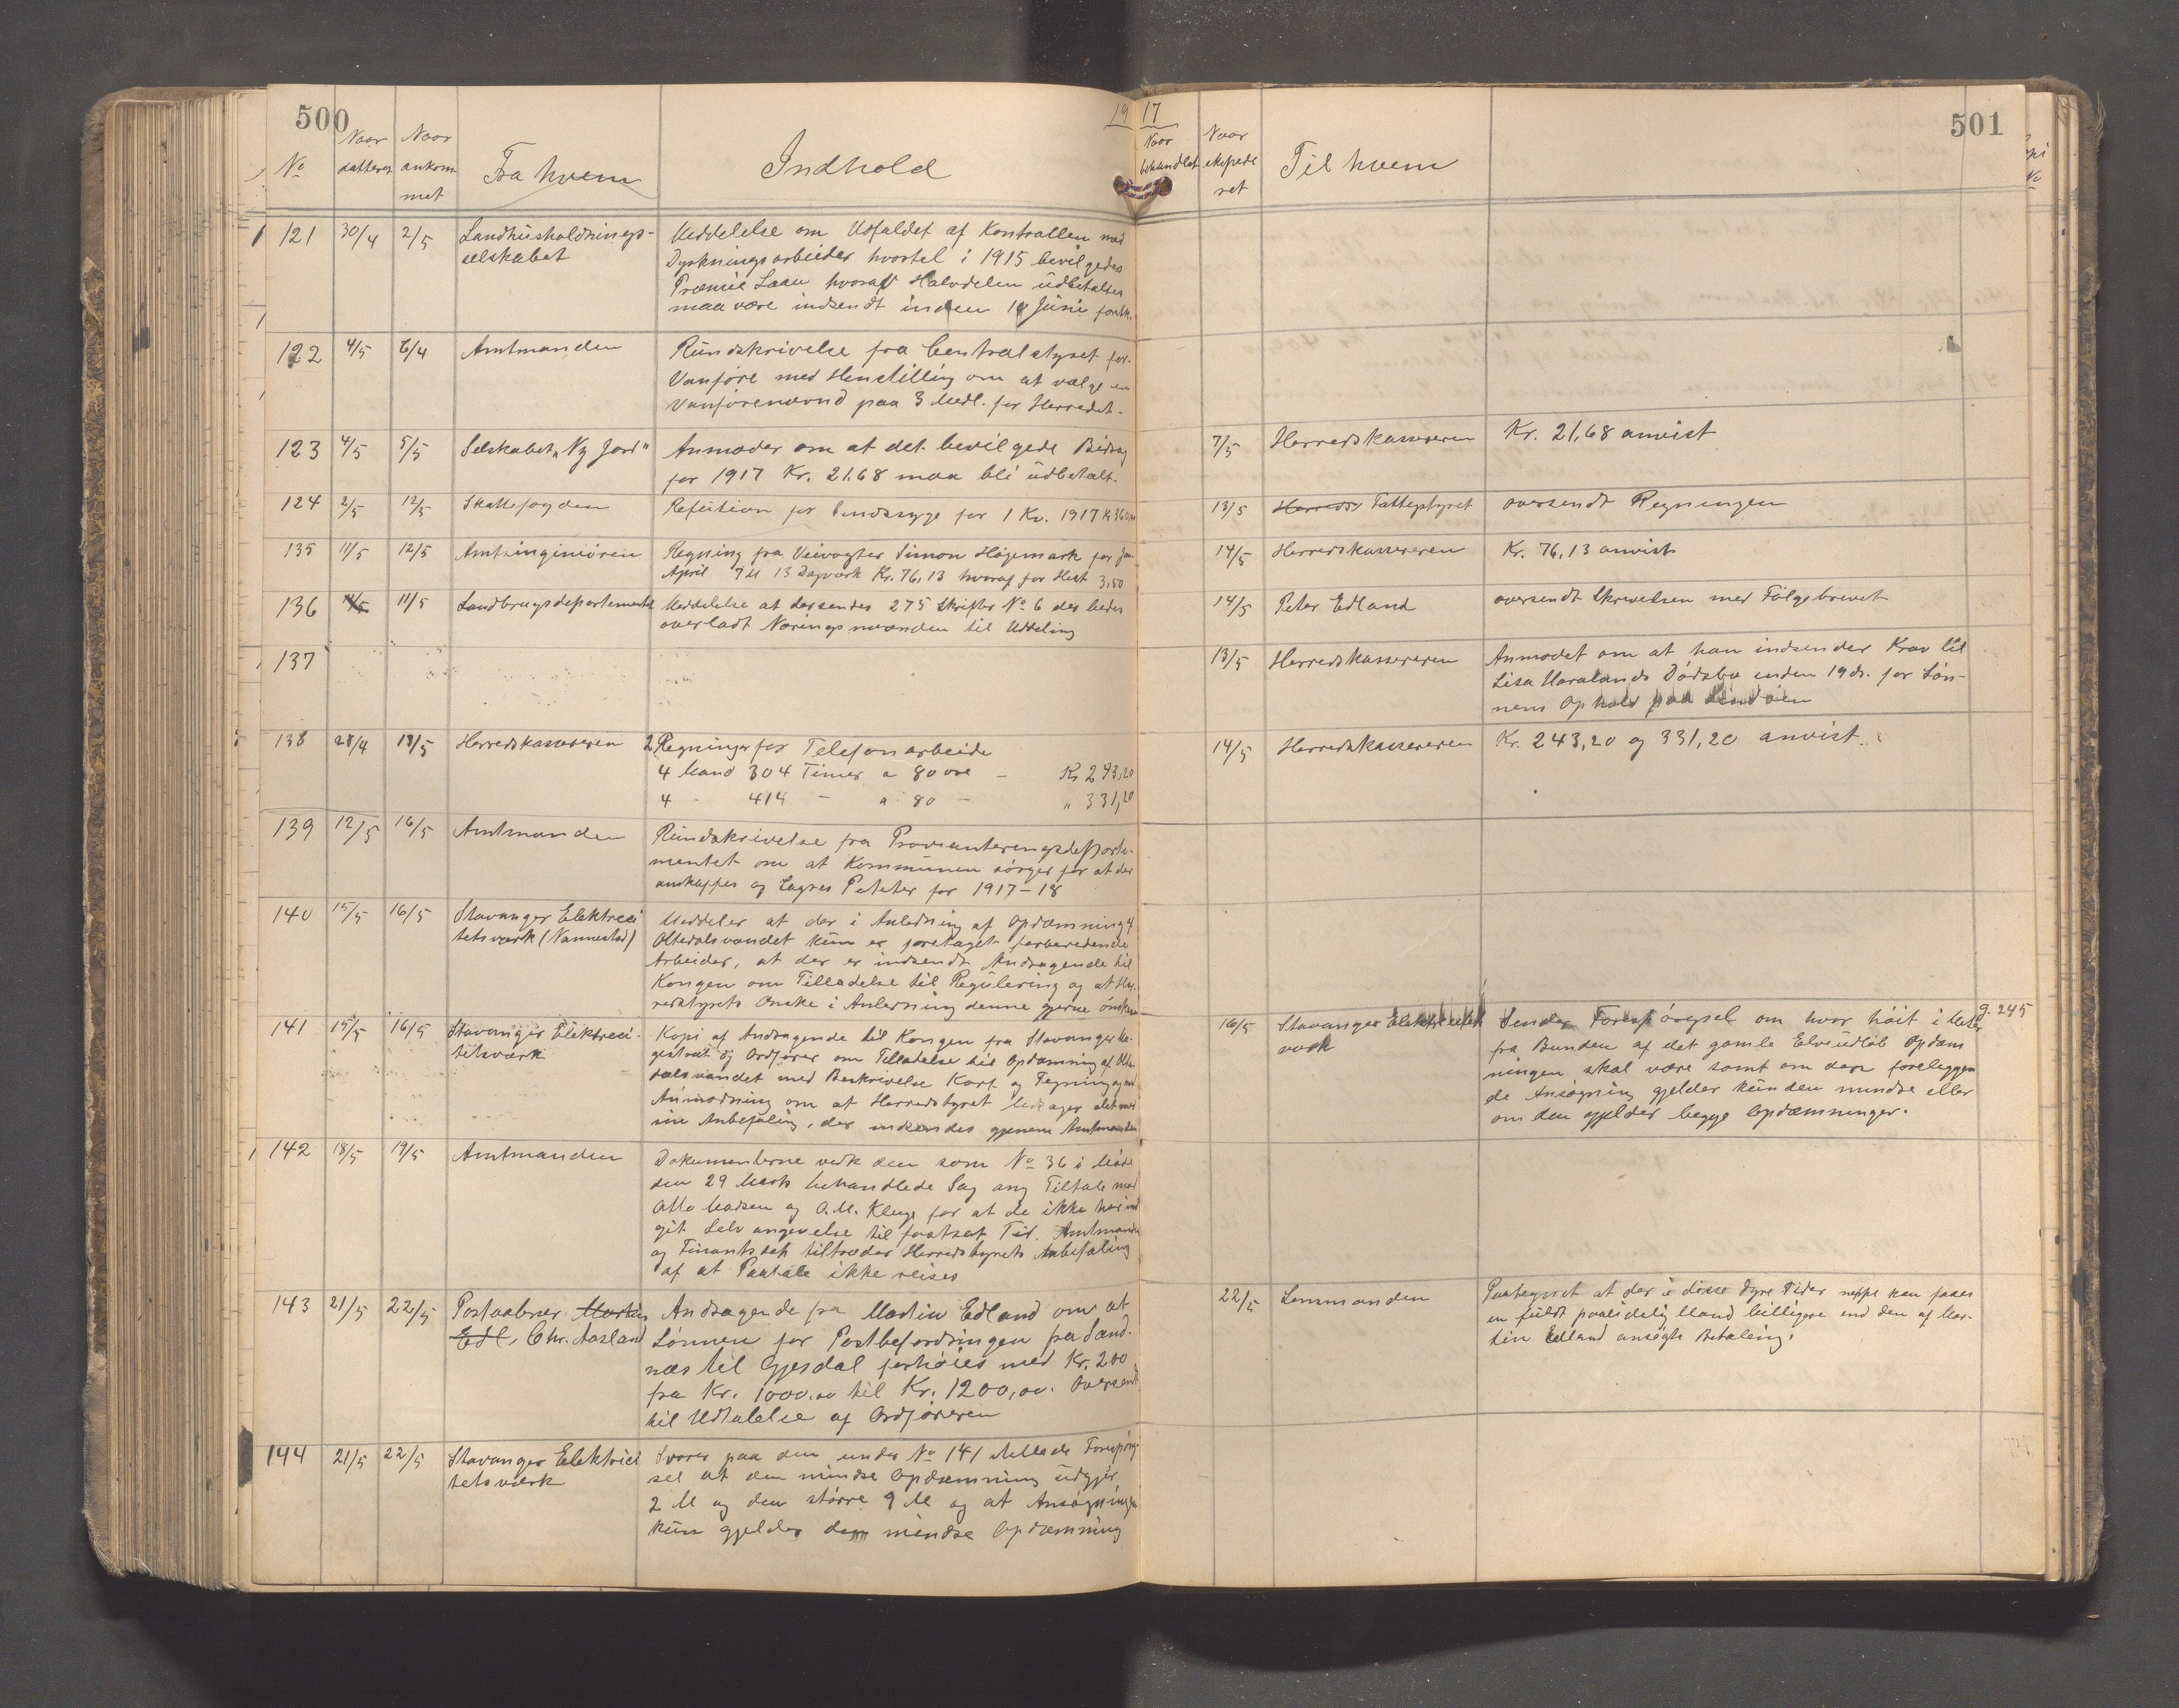 500
19 17
501
No
Naar datteret
Naar ankommet
Fra hvem
Indhold
Naar behandlet
Naar ekspederet
Til hvem
121 30/4 2/5 Landhusholdnings-
selskabet
Meddelelse om Udfaldet af Kontrollen med
Dyrkningsarbeider hvortil i 1915 bevilgedes
Præmie Laan hvoraf Halvdelen udbetaltes
maa være indsendt inden 1 Juni
122 4/5 6/4 Amtmanden
Rundskrivelse fra Centralstyret for
Vanføre med Henstilling om at vælge en
Vanførenævnd paa 3 Medl. for Herredet.
123 4/5 5/5 Selskabet „Ny Jord"
Anmoder om at det bevilgede Bidrag
for 1917 Kr. 21.68 maa bli udbetalt.
7/5 Herredskassereren Kr. 21,68 anvist
124 2/5 12/5 Skattefogden
Refution for Sindssyge for 1 Kv. 1917
13/5 Herreds Fattigstyret oversendt Regningen
135 11/5 12/5 Amtsingeniøren
Regning fra Veivogter Simon Høgemark for
April 7 M 13 Dagværk Kr. 76,13 hvoraf for Hest 3,50
14/5 Herredskassereren Kr. 76,13 anvist
136 11/5 11/5 Landbrugsdepartementet
Meddelelse at der sendes 275 Skrifter No 6 der bedes
overladt Næringsnævnden til Uddeling
14/5 Peter Edland oversendt Skrivelsen med Følgebrevet
137
13/5 Herredskassereren Anmodet om at han indsender Krav til
Lisa Haralands Dødsbo inden 19 ds. for Søn-
nens Ophold paa Lindøen
138 28/4 13/5 Herredskassereren
2 Regninger for Telefonarbeide
4 Mand 304 Timer a 80 øre - Kr 243,20
4 - 414 - a 80 - " 331,20
14/5 Herredskassereren Kr. 243,20 og 331,20 anvist.
139 12/5 16/5 Amtmanden
Rundskrivelse fra Provianteringsdeparte-
mentet om at Kommunen sørger for at der
anskaffes og lagres Poteter for 1917-18
140 15/5 16/5 Stavanger Elektrici
tetsværk (Nannestad)
Meddeler at der i Anledning af Opdæmning af
Oltedalsvandet kun er foretaget forberedende
Arbeider, at der er indsendt Andragende til
Kongen om Tilladelse til Regulering og at Her-
redstyrets Ønske i Anledning denne gjerne ønskes
141 15/5 16/5 Stavanger Elektrici-
titsværk
Kopi af Andragende til Kongen fra Stavanger Ma-
gistrat og Ordfører om Tilladelse til Opdæmning af Olte
dalsvandet med Beskrivelse Kart og Tegning og med
Anmodning om at Herredstyret ledsager det med
sin Anbefaling, der indsendes gjenem Amtmanden
16/5 Stavanger Elektricitets
værk
Sender Forespørgsel om hvor høit i Meter
fra Bunden af det gamle Elveudløb Opdæm
ningen skal være samt om den foreliggen
de Ansøgning gjelder kun den mindre eller
om den gjelder begge Opdæmninger.
g. 245
142 18/5 19/5 Amtmanden
Dokumenterne vedk den som No 36 i Møde
den 29 Marts behandlede Sag ang Tiltale mod
Otto Madsen og O.M. Kluge for at de ikke har ind
git Selvangivelse til fastsat Tid. Amtmanden
og Finantsdep tiltræder Herredstyrets Anbefaling
af at Paatale ikke reises
143 21/5 22/5 Postaabner Martin
Edl, Chr. Aasland
Andragende fra Martin Edland om at
Lønnen for Postbefordringen fra Sand-
næs til Gjesdal forhøies med Kr. 200
fra Kr. 1000.00 til Kr. 1200,00. Oversendt
til Udtalelse af Ordføreren
22/5 Lensmanden Paategnet at der i disse dyre Tider neppe kan faaes
en fuldt paalidelig Mand billigere end den af Mar-
tin Edland ansøgte Betaling.
144 21/5 22/5 Stavanger Elektrici
tetsværk
Svarer paa den under No 141 stillede Forespørg-
sel at den mindre Opdæmning udgjør
2 M og den større 9 M og at Ansøgningen
kun gjelder den mindre Opdæmning